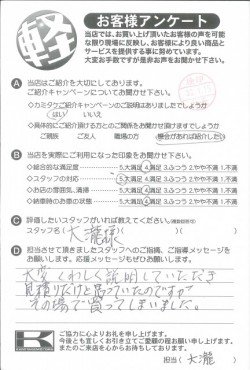 軽
お客様アンケート
当店では、お買い上げ頂いたお客様の声を可能
な限り現場に反映し、お客様により良い商品と
サービスを提供する事に努めています。
大変お手数ですが是非お声をお聞かせ下さい。
A 当店はご紹介を大切にしてあります。
ご紹介キャンペーンについてお聞かせ下さい。
◇カミタウご紹介キャンペーンのご説明はありましたでしょうか
はい いいえ
◇具体的にご紹介頂ける方とのご関係をお聞かせ頂けますでしょうか
ご親族 ご友人 職場の方 機会があれば紹介したい
B 当店を実際にご利用になった印象をお聞かせ下さい。
◇総合的な満足度 5.大満足 4.満足 3.ふつう 2.やや不満 1.不満
◇スタッフの対応 5.大満足 4.満足 3.ふつう 2.やや不満 1.不満
◇お店の雰囲気、清掃 5.大満足 4.満足 3.ふつう 2.やや不満 1.不満
◇納車時のお車の状態 5.大満足 4.満足 3.ふつう 2.やや不満 1.不満
C 評価したいスタッフがいれば教えてください。(複数回答可)
スタッフ名( 大瀧様 )
D 担当させて頂きましたスタッフへのご指摘、ご指導メッセージを
お願いします。応援メッセージもぜひお願いします。
大変くわしく説明していただき
見積りだけと思っていたのですが
その場で買ってしまいました。
K
ご協力に心よりお礼を申し上げます。
今後とも宜しくお引き立てご愛顧の程お願い申し上げます。
またのご来店を心からお待ちしております。
担当( 大瀧 )